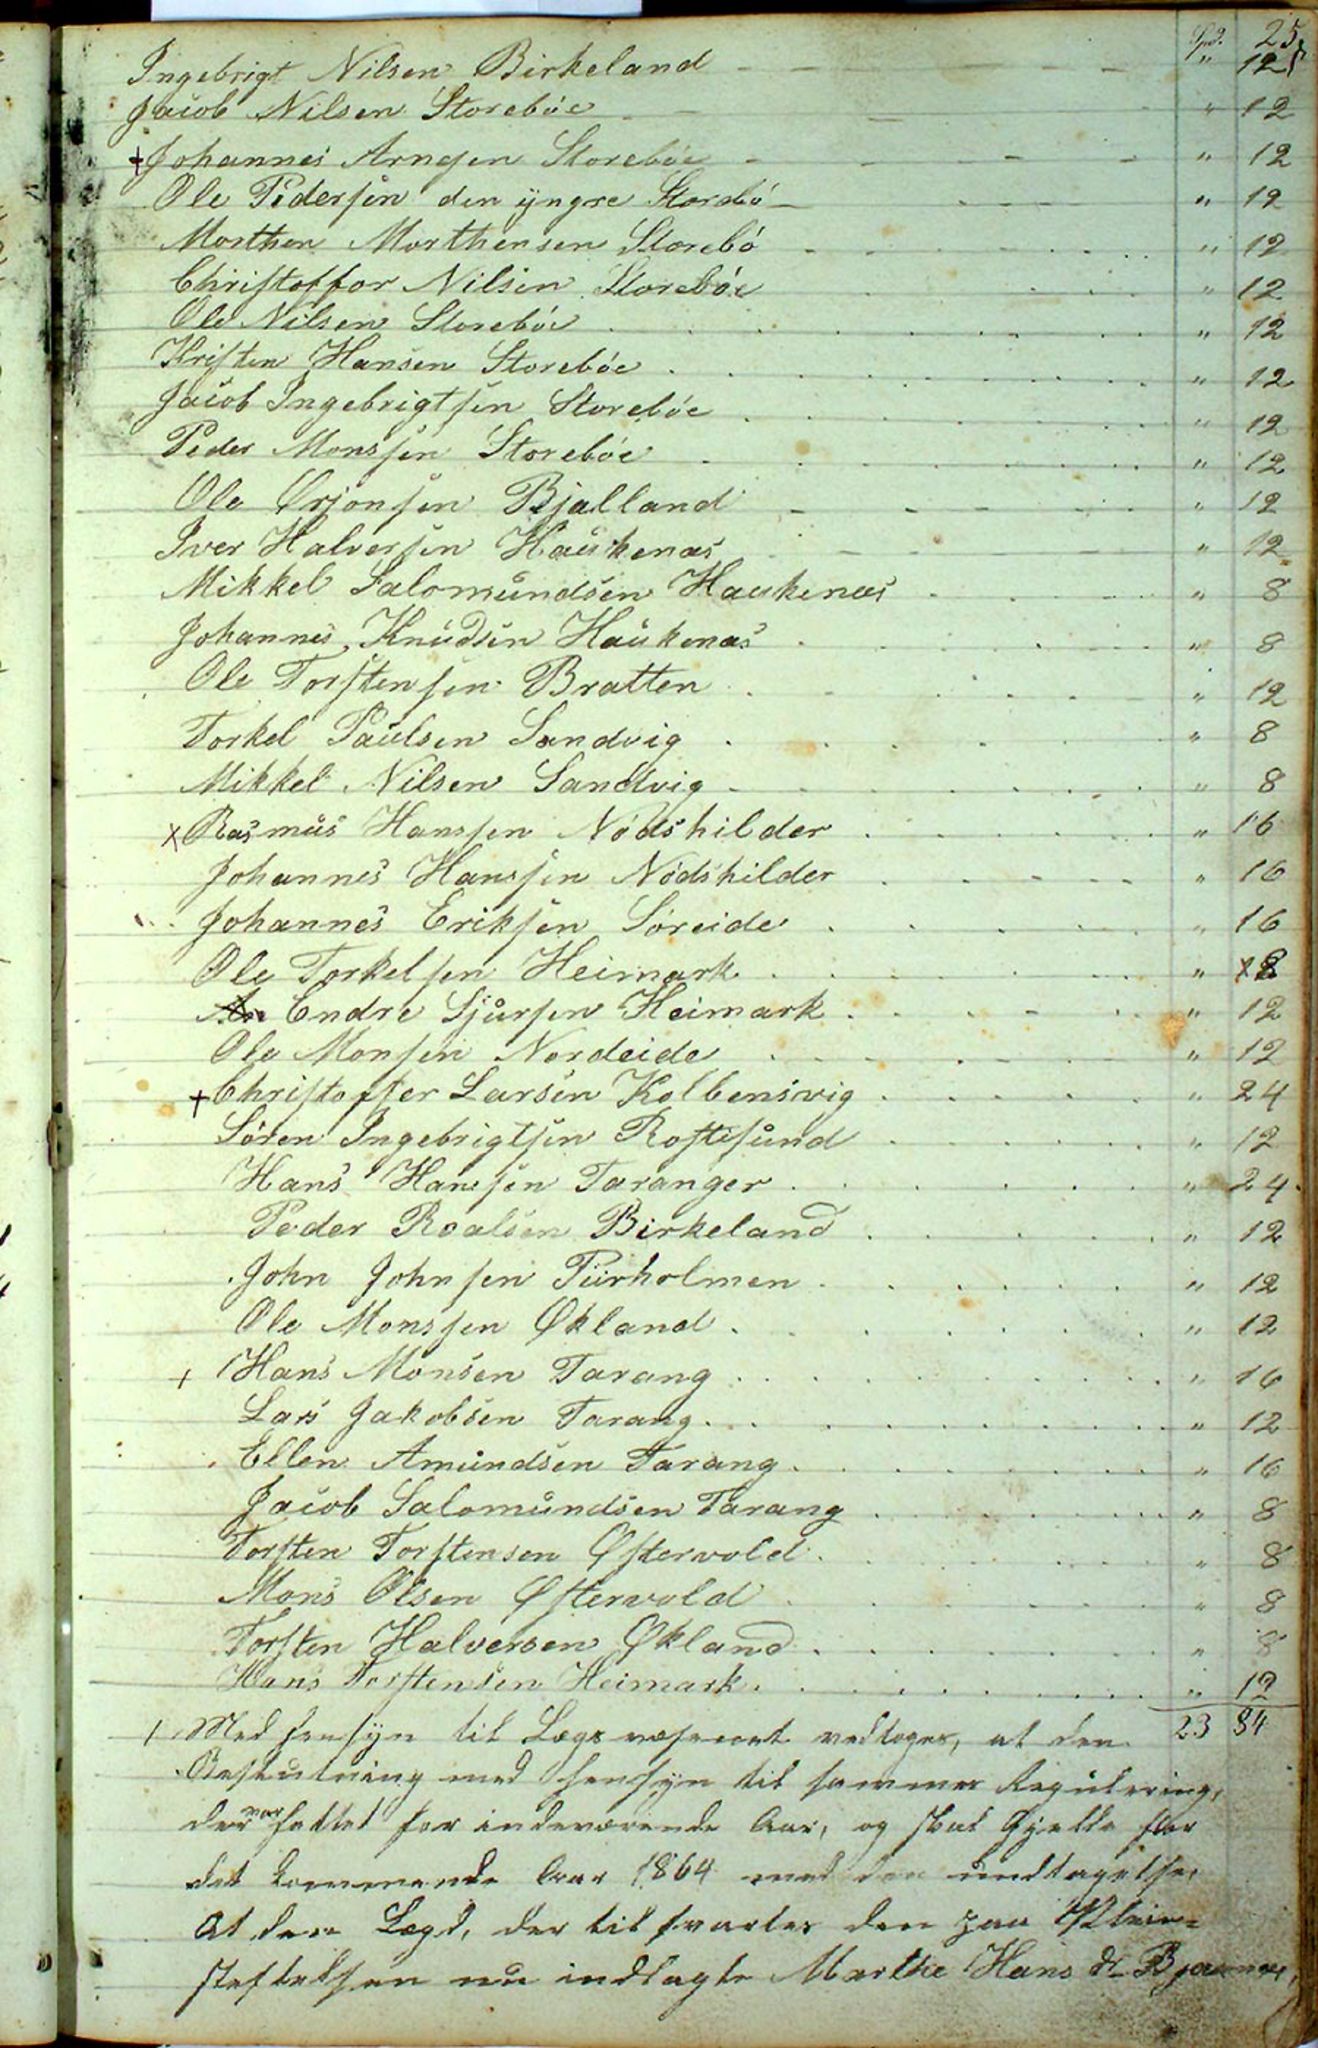 Spd. 25.
Ingebrigt Nilsen Birkeland - - - " 12 ß
Jacob Nilsen Storebøe - - " 12
+ Johannes Arnesen Storebøe - - - - " 12
Ole Pedersen den yngre Storebø - - - - " 12
Morthen Morthensen Storebø - - - " 12
Christoffer Nilsen Storebøe . . . " 12
Ole Nilsen Storebøe . . . . " 12
Kristen Hansen Storebøe . . . . " 12
Jacob Ingebrigtsen Storebøe . . . . " 12
Peder Monssen Storebøe . . . . " 12
Ole Ørjansen Bjalland - - - - " 12
Iver Halversen Haukenæs - - - - " 12
Mikkel Salomundsen Haukenæs - - - " 8
Johannes Knudsen Haukenæs . . . . " 8
Ole Torstensen Bratten . . . . " 12
Torkel Paulsen Sandvig . . . . " 8
Mikkel Nilsen Sandvig . . . . " 8
x Rasmus Hanssen Nødskilder . . . . " 16
Johannes Hanssen Nødskilder . . . . " 16
Johannes Eriksen Søreide . . . . " 16
Ole Torkelsen Heimark . . . . " 8
Endre Sjursen Heimark . . . . " 12
Ole Monsen Nordeide . . . . " 12
+ Christoffer Larsen Kolbensvig . . . . " 24
Søren Ingebrigtsen Rostesund . . . . " 12
Hans Hansen Taranger . . . . " 24.
Peder Roalsen Birkeland . . . . " 12
John Johnsen Purholmen . . . . " 12
Ole Monssen Økland . . . . " 12
+ Hans Monsen Tarang . . . . " 16
Lars Jakobsen Tarang . . . . " 12
Ellen Amundsen Tarang . . . . " 16
Jacob Salomundsen Tarang . . . . " 8
Torsten Torstensen Østervold . . . . " 8
Mons Olsen Østervold . . . . " 8
Torsten Halversen Økland . . . . " 8
Hans Torstensen Heimark . . . . " 12
23 84
Med Hensyn til Lægsvæsenet vedtoges, at den
Beslutning med Hensyn til sammes Regulering,
der var fattet for indeværende Aar, og skal gjelde for
det kommende Aar 1864 med den undtagelse,
at den Lægd, der tilsvarer den paa Pleie-
stiftelsen nu indlagte Marthe Hans Dr